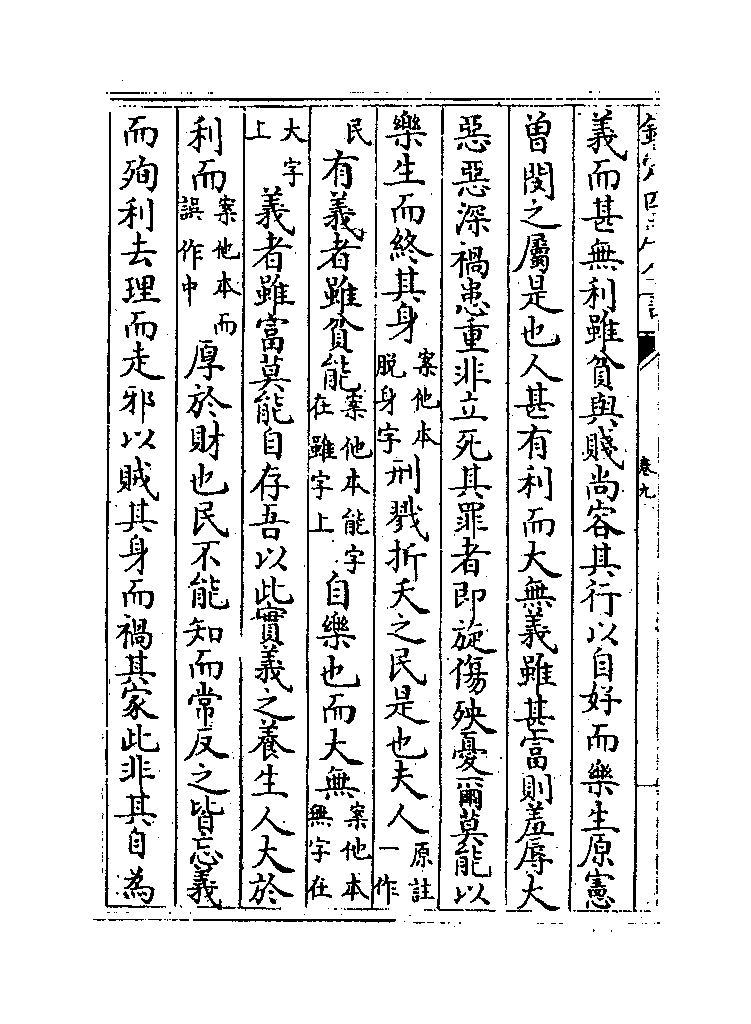 欽定四庫全書
卷九
義而甚無利雖貧與賤尚容其行以自好而樂生原憲
曾閔之屬是也人甚有利而大無義雖甚富則羞辱大
惡惡深禍患重非立死其罪者即旋傷殃憂爾莫能以
樂生而終其身案他本脱身字刑戮折夭之民是也夫人原註一作
民有義者雖貧能案他本能字在雖字上自樂也而大無案他本無字在
大字上義者雖富莫能自存吾以此實義之養生人大於
利而案他本而誤作中厚於財也民不能知而常反之皆忘義
而殉利去理而走邪以賊其身而禍其家此非其自為